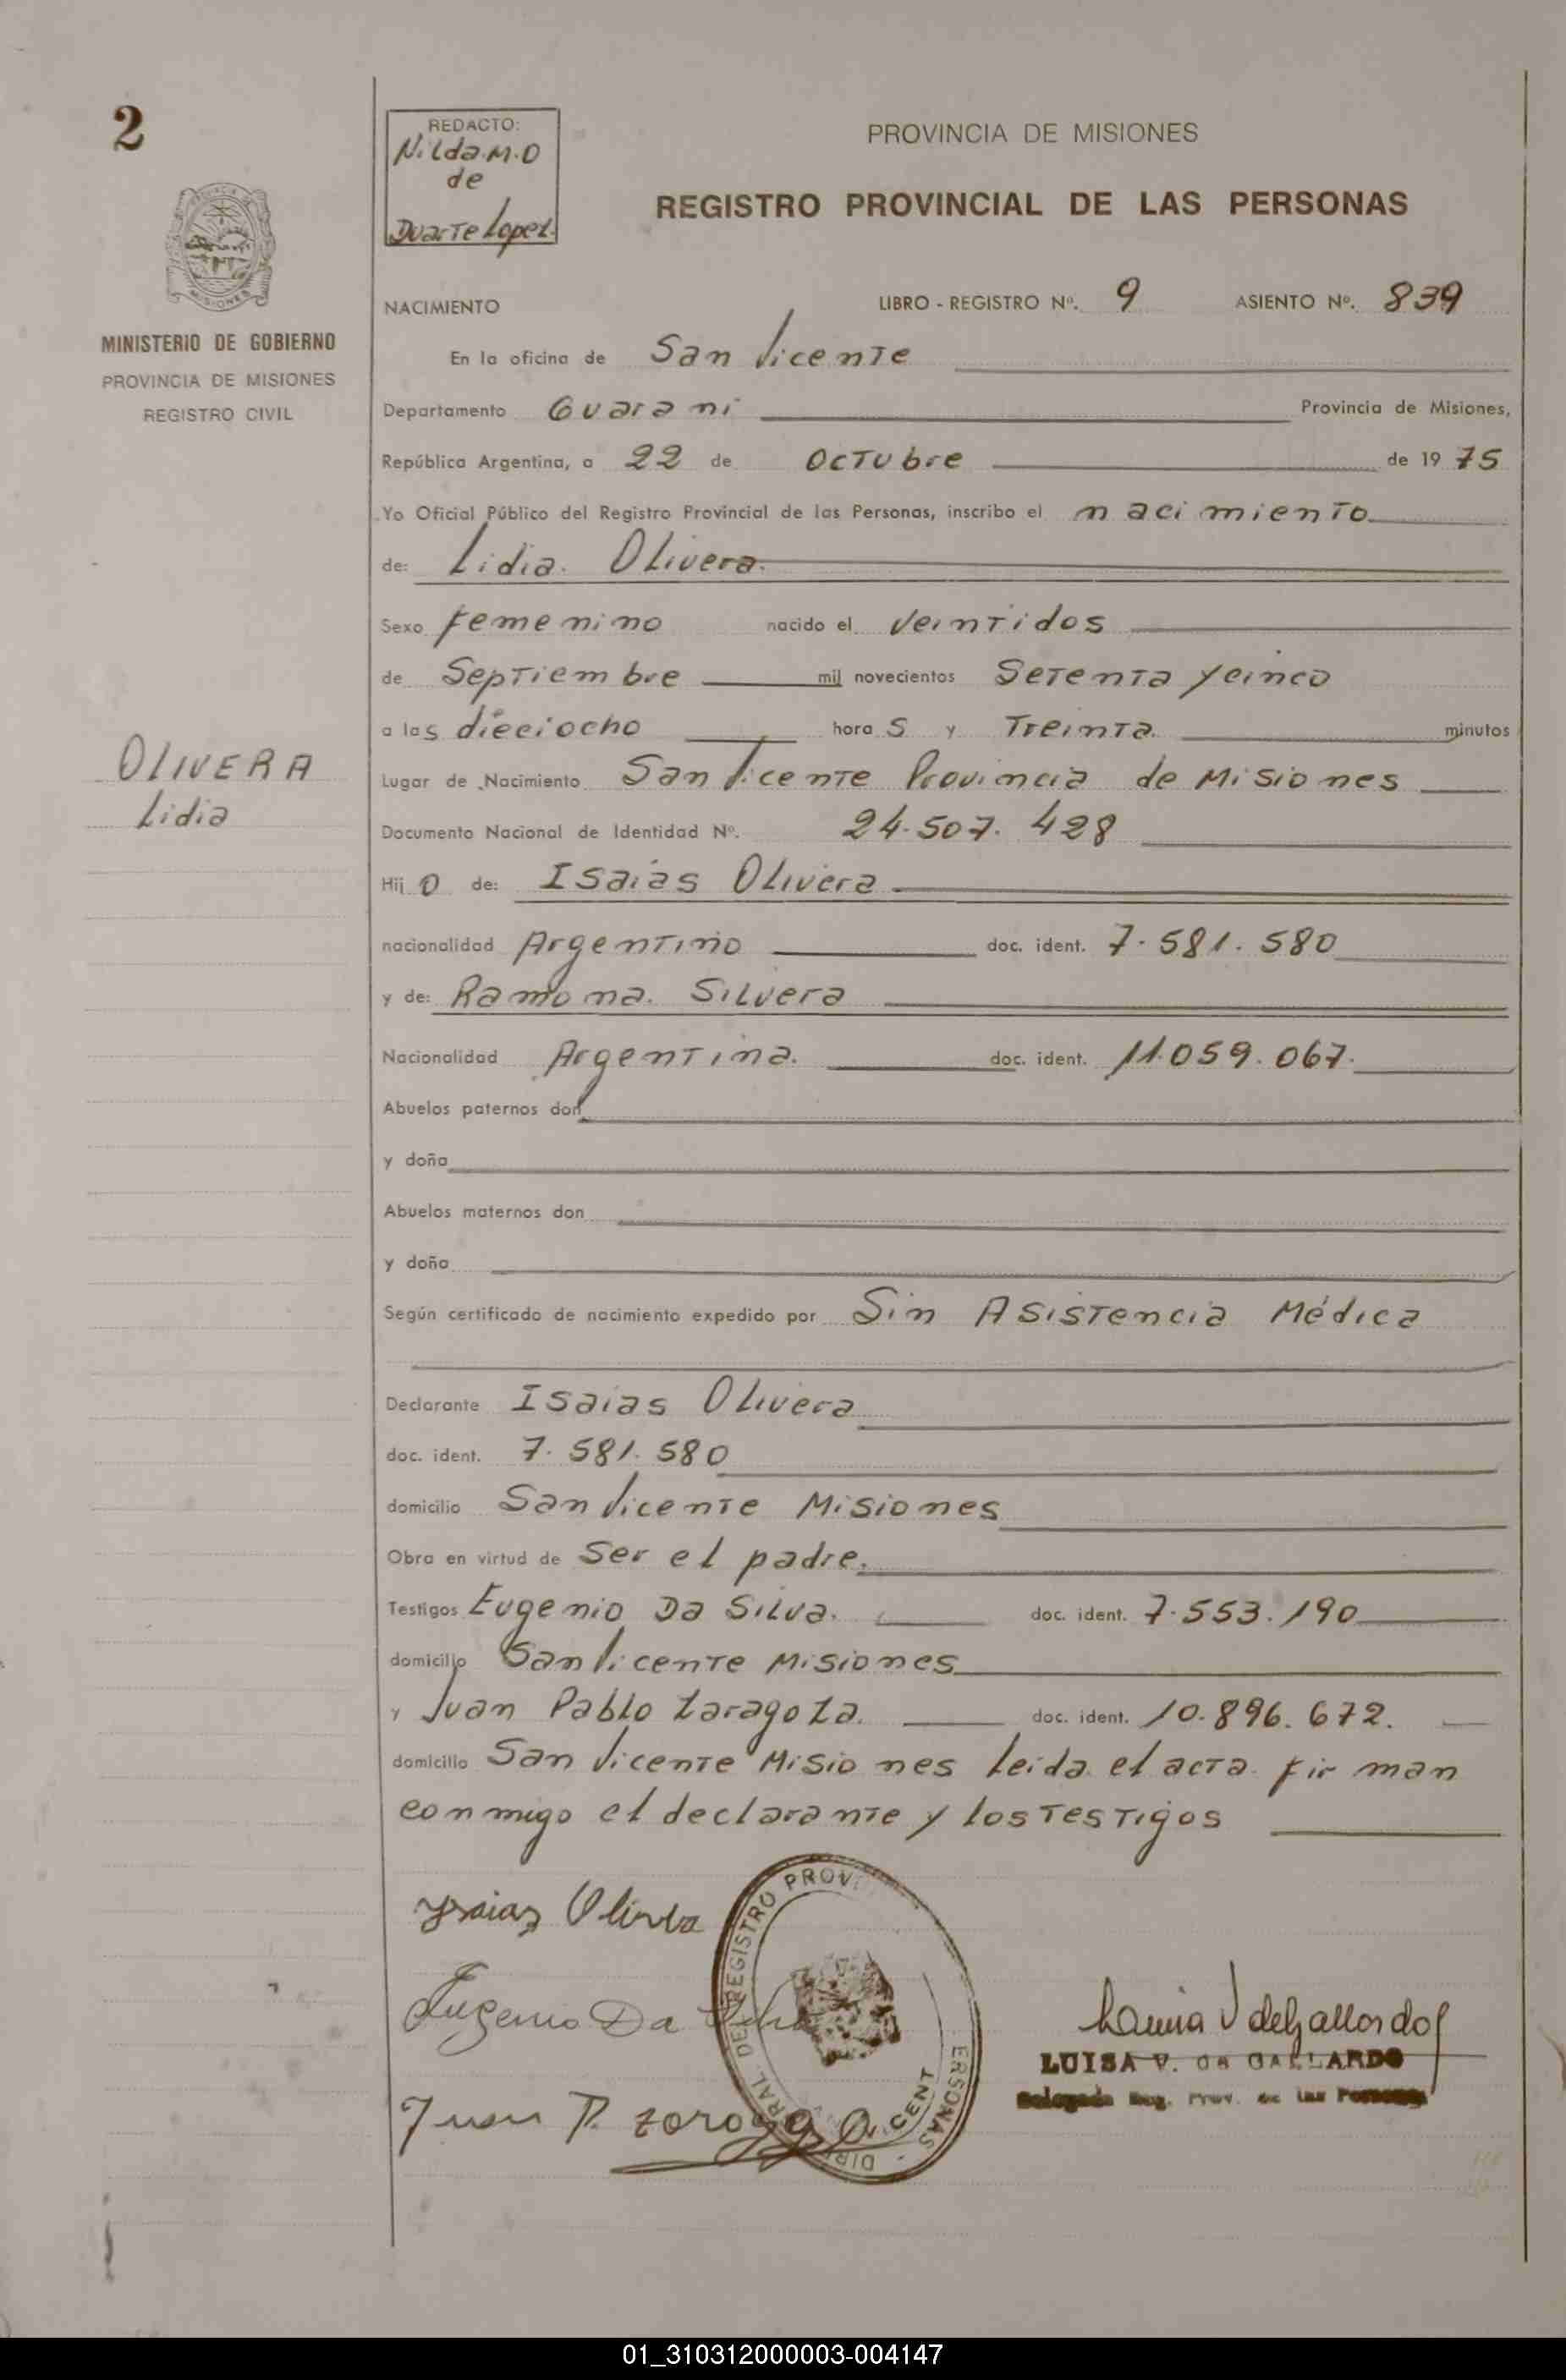 2
REDACTO:
Nilda.M.O
de
Duarte Lopez.
PROVINCIA DE MISIONES
REGISTRO PROVINCIAL DE LAS PERSONAS
MISIONES
MINISTERIO DE GOBIERNO
PROVINCIA DE MISIONES
REGISTRO CIVIL
NACIMIENTO LIBRO - REGISTRO Nº. 9 ASIENTO Nº. 839
En la oficina de San Vicente
Departamento Guarani Provincia de Misiones,
República Argentina, a 22 de Octubre de 19 75
Yo Oficial Público del Registro Provincial de las Personas, inscribo el nacimiento
de: Lidia. Olivera.
Sexo femenino nacido el veintidos
de Septiembre mil novecientos Setenta y cinco
a las dieciocho hora s y Treinta. minutos
OLIVERA
Lidia
Lugar de Nacimiento San Vicente Provincia de Misiones
Documento Nacional de Identidad Nº. 24.507.428
Hij o de: Isaias Olivera
nacionalidad Argentino doc. ident. 7.581.580
y de: Ramona. Silvera
Nacionalidad Argentina. doc. ident. 11.059.067.
Abuelos paternos don
y doña
Abuelos maternos don
y doña
Según certificado de nacimiento expedido por Sin Asistencia Médica
Declarante Isaias Olivera
doc. ident. 7.581.580
domicilio San Vicente Misiones
Obra en virtud de Ser el padre.
Testigos Eugenio Da Silva. doc. ident. 7.553.190
domicilio San Vicente Misiones
y Juan Pablo Zaragoza. doc. ident. 10.896.672.
domicilio San Vicente Misiones leida el acta firman
conmigo el declarante y los Testigos
Ysaias Olivera
Eugenio Da Silva
Juan P. zaragoza
REGISTRO PROV
PERSONAS
Luisa V de Gallardo
LUISA V. DE GALLARDO
Delegada Reg. Prov. de las Personas
01_310312000003-004147